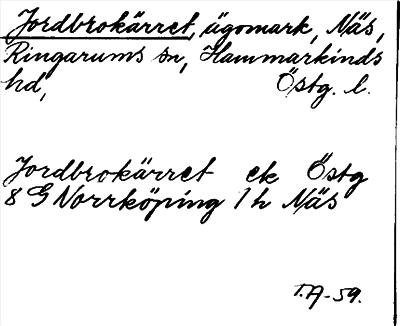 Jordbrokärret, ägomark, Näs,
Ringarums sn, Hammarkinds
hd, Östg. l.
Jordbrokärret ek Östg
8 G Norrköping 1 h Näs
T.A-59.